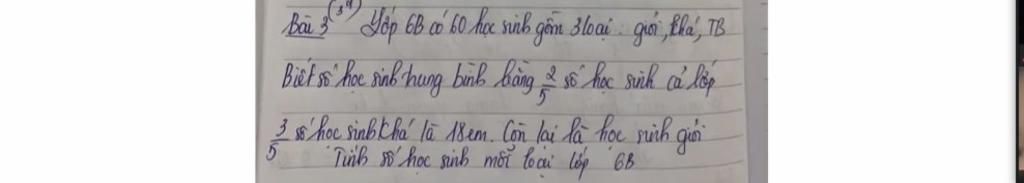 Bài 3 (3đ) Lớp 6B có 60 học sinh gồm 3 loại: giỏi, khá, TB
Biết số học sinh trung bình bằng 2/5 số học sinh cả lớp
3/5 số học sinh khá là 18 em. Còn lại là học sinh giỏi
Tính số học sinh mỗi loại lớp 6B